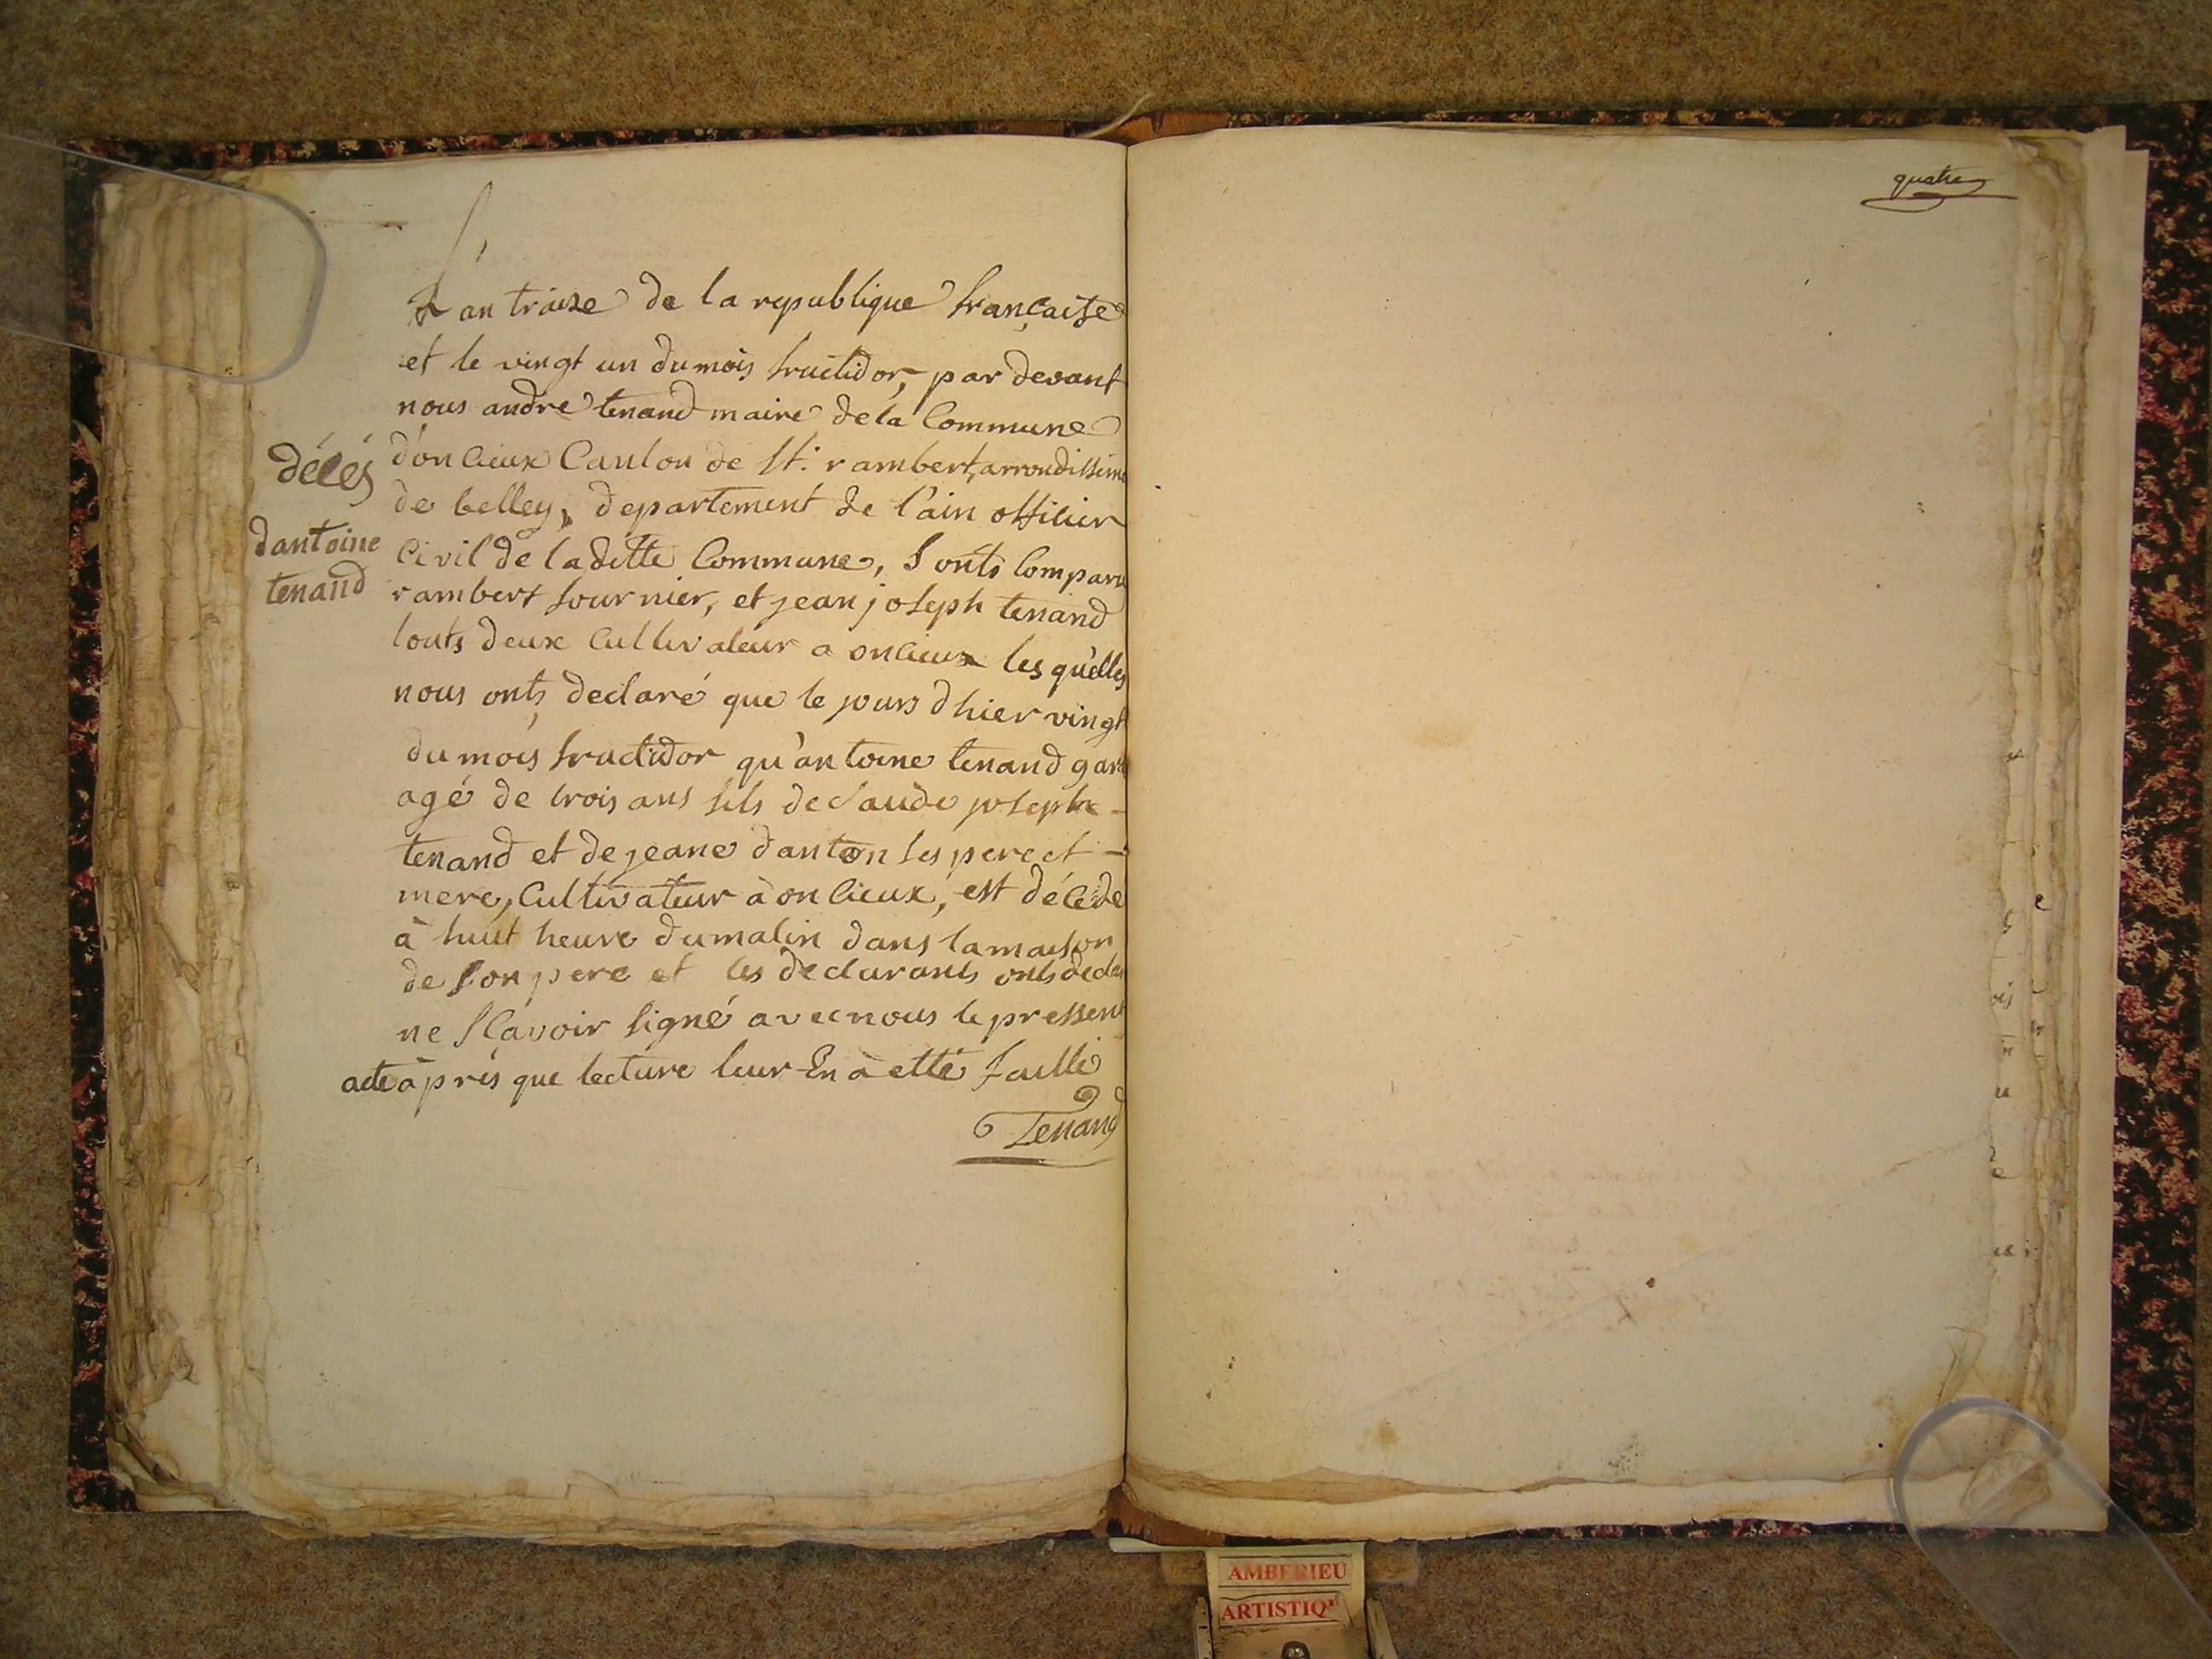 L'an traize de la republique française
et le vingt un du mois fructidor, par devant
nous andre tenand maire de la Commune
d'oncieux Canton de St. rambert, arrondissime
de belley, departement de l'ain officier
Civil de laditte Commune, Sonts Comparu
rambert fournier, et jean joseph tenand
touts deux Cultivateur a oncieux les quelles
nous onts declaré que le jours dhier vingt
du mois fructidor qu'antoine tenand gar
agé de trois ans fils de claude joseph -
tenand et de jeane danton ses pere et -
mere, Cultivateur à oncieux, est décéde
à huit heure du matin dans la maison
de Son pere et les declarants onts decla
ne Scavoir signé avec nous le pressent
acte àprés que lecture leur En à etté faille
Tenand
décés
dantoine
tenand
quatre
AMBERIEU
ARTISTIQ